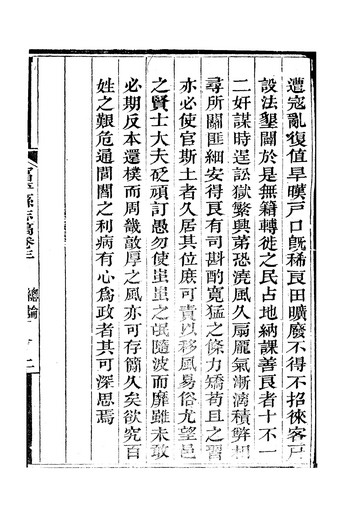 遭寇亂復值旱暵戶口既稀良田曠廢不得不招徠客戶
設法墾闢於是無籍轉徙之民占地納課善良者十不一
二奸謀時逞訟獄繁興第恐澆風久扇龐氣漸漓積弊相
尋所關匪細安得良有司斟酌寬猛之條力矯苟且之習
亦必使官斯土者久居其位庶可責以移風易俗尤望邑
之賢士大夫砭頑訂愚勿使蚩蚩之氓隨波而靡雖未敢
必期反本還樸而周畿敦厚之風亦可存籲久矣欲究百
姓之艱危通閭閻之利病有心為政者其可深思焉
富平縣志稿卷三
總論